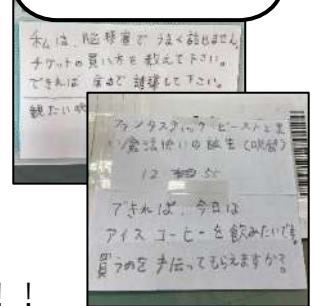 私は、脳梗塞でうまく話せません。
チケットの買い方を教えて下さい。
できれば 席まで 誘導して下さい。
観たい映
ファンタスティック ビーストと黒
い魔法使いの誕生(吹替)
12 55
できれば、今日は
アイスコーヒーを飲みたいです。
買うのを手伝ってもらえますか?
!!